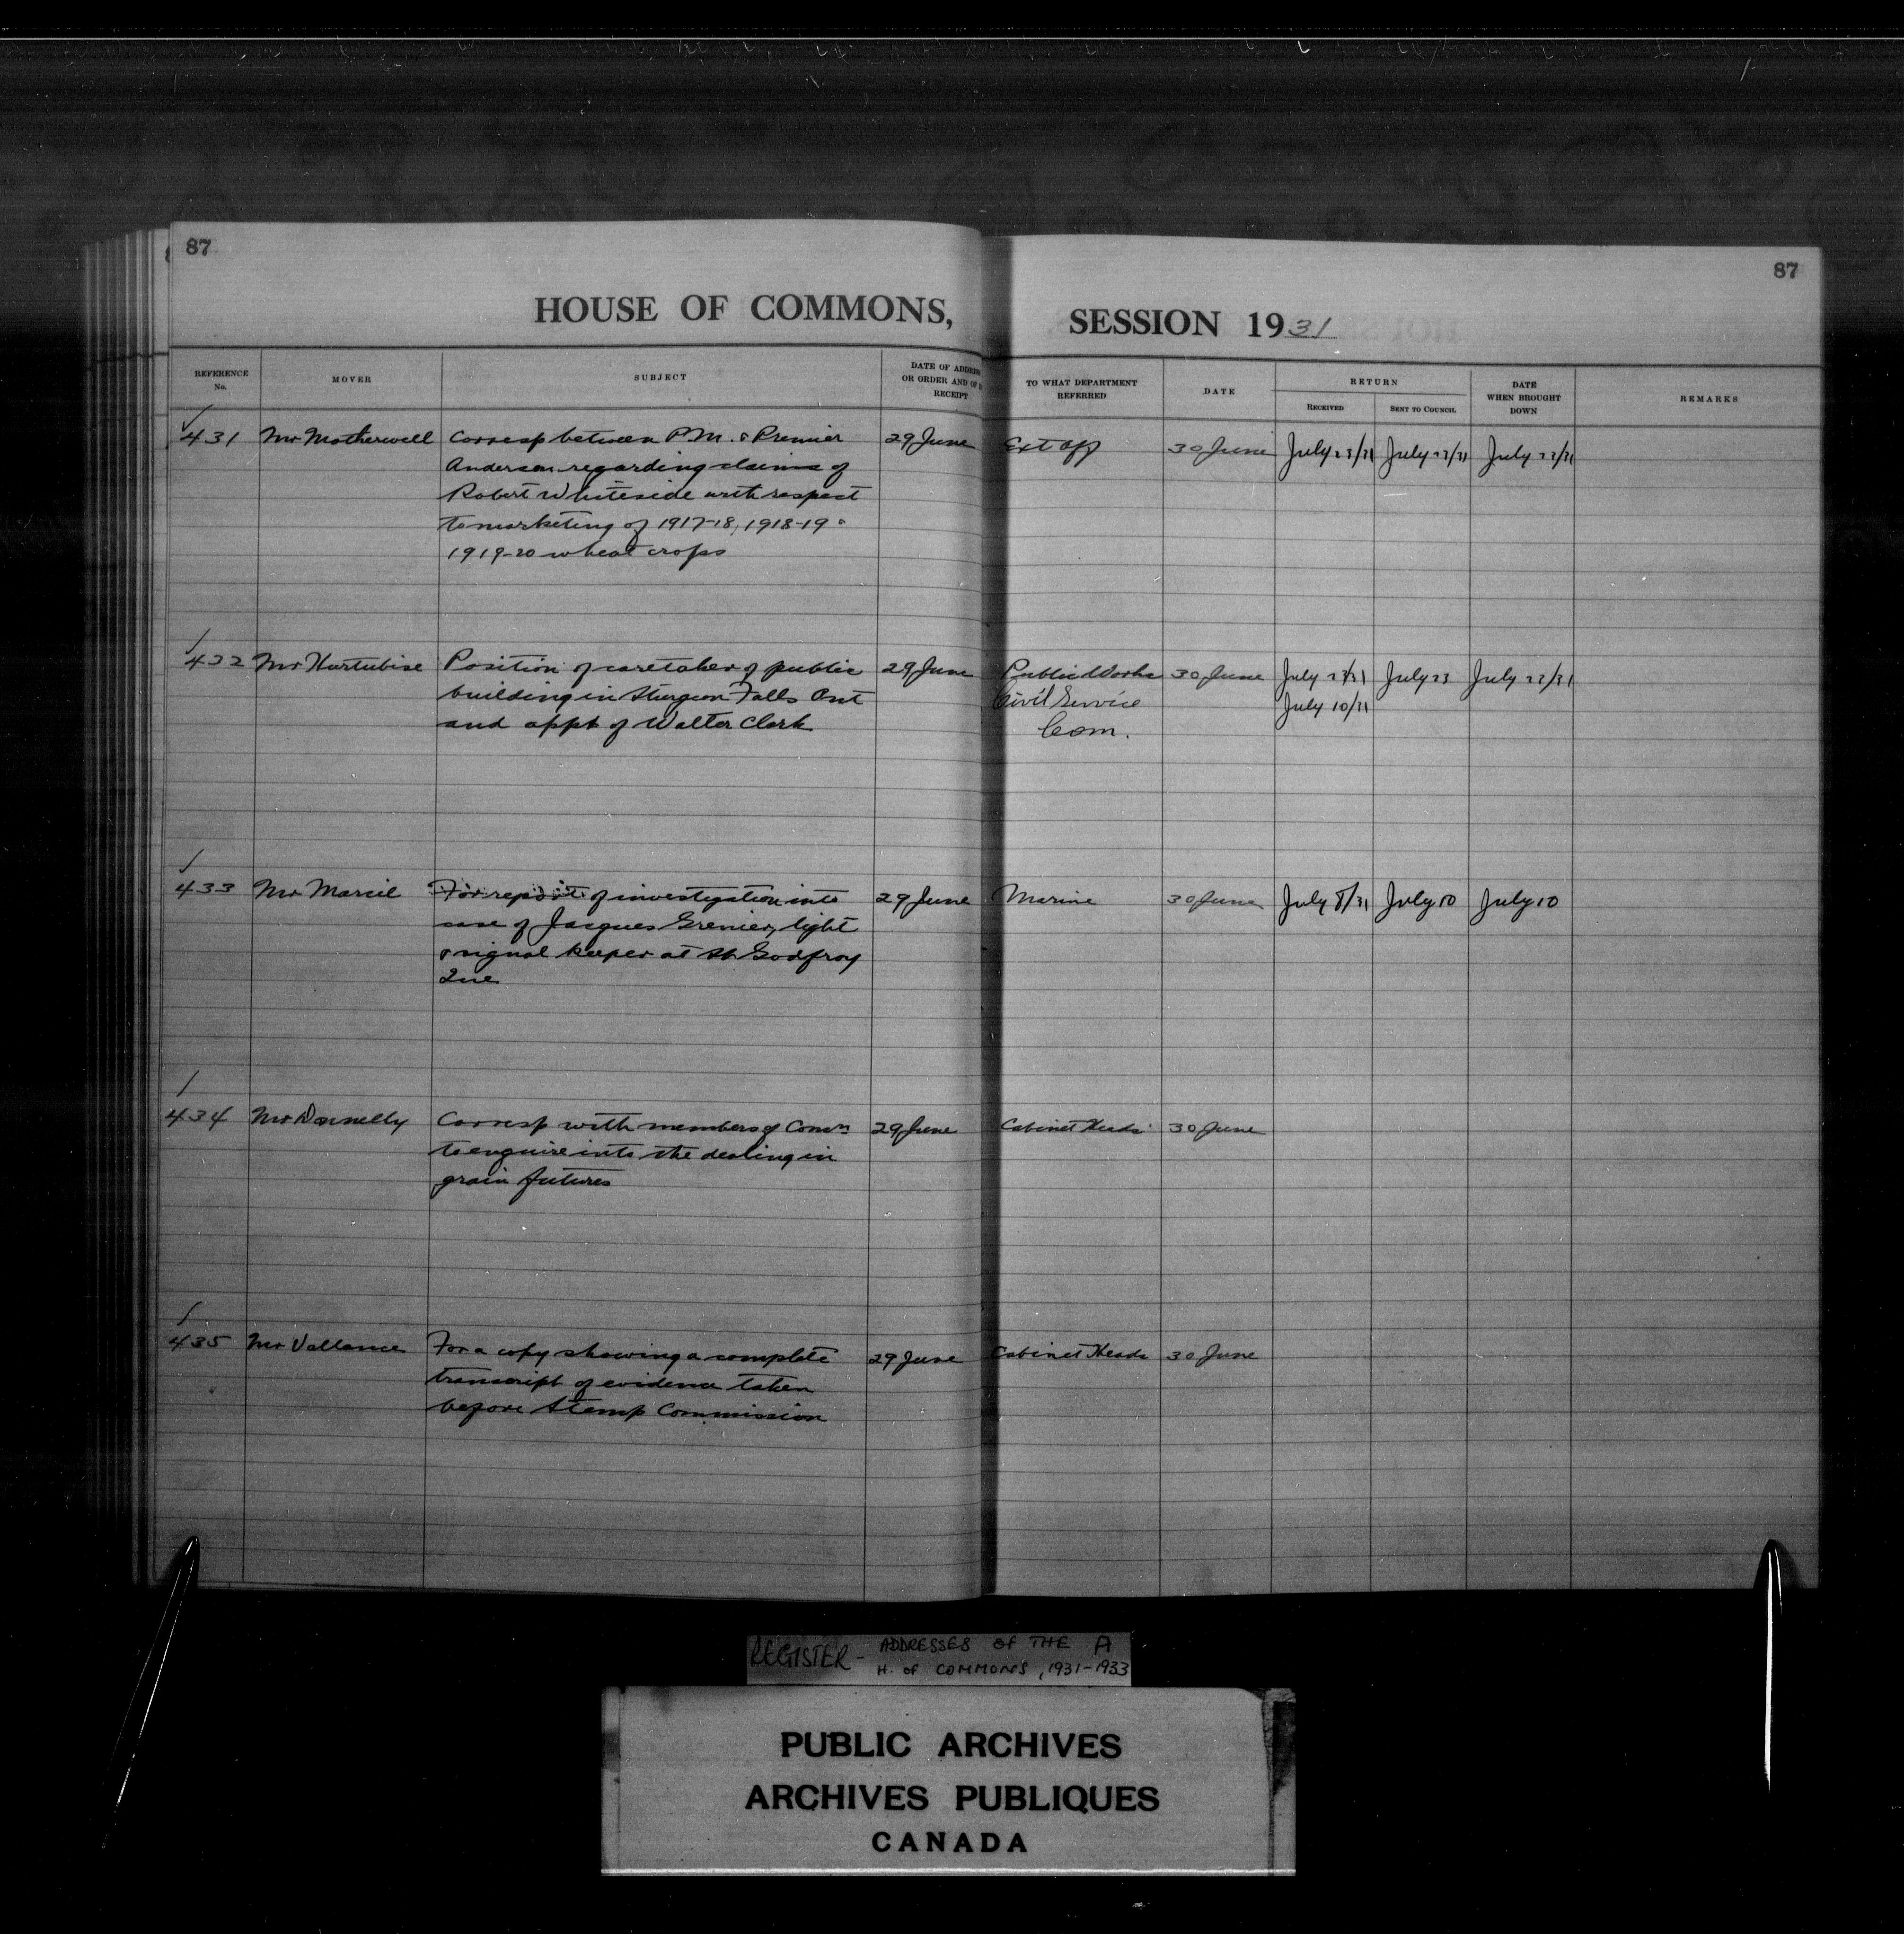 87
87
HOUSE OF COMMONS,
SESSION 1931
REFERENCE No.
MOVER
SUBJECT
DATE OF ADDRESS OR ORDER AND OF ITS RECEIPT
TO WHAT DEPARTMENT REFERRED
DATE
RETURN
RECEIVED
SENT TO COUNCIL
DATE WHEN BROUGHT DOWN
REMARKS
431 Mr Motherwell Corresp between P.M. & Premier 29 June Ext Aff 30 June July 23/31 July 23/31 July 23/31
Anderson regarding claims of
Robert Whiteside with respect
to marketing of 1917-18, 1918-19 &
1919-20 wheat crops
432 Mr Hurtubise Position of caretaker of public 29 June Public Works 30 June July 23/31 July 23 July 23/31
building in Sturgeon Falls Ont Civil Service July 10/31
and appt of Walter Clark Com.
433 Mr Marcil For report of investigation into 29 June Marine 30 June July 8/31 July 10 July 10
case of Jacques Grenier, light
& signal keeper at St. Godfroy
Que
434 Mr Donnelly Corresp with members of Comn 29 June Cabinet Heads 30 June
to enquire into the dealing in
grain futures
435 Mr Vallance For a copy showing a complete 29 June Cabinet Heads 30 June
transcript of evidence taken
before Stamp Commission
REGISTER - ADDRESSES OF THE A
H. OF COMMONS, 1931-1933
PUBLIC ARCHIVES
ARCHIVES PUBLIQUES
CANADA